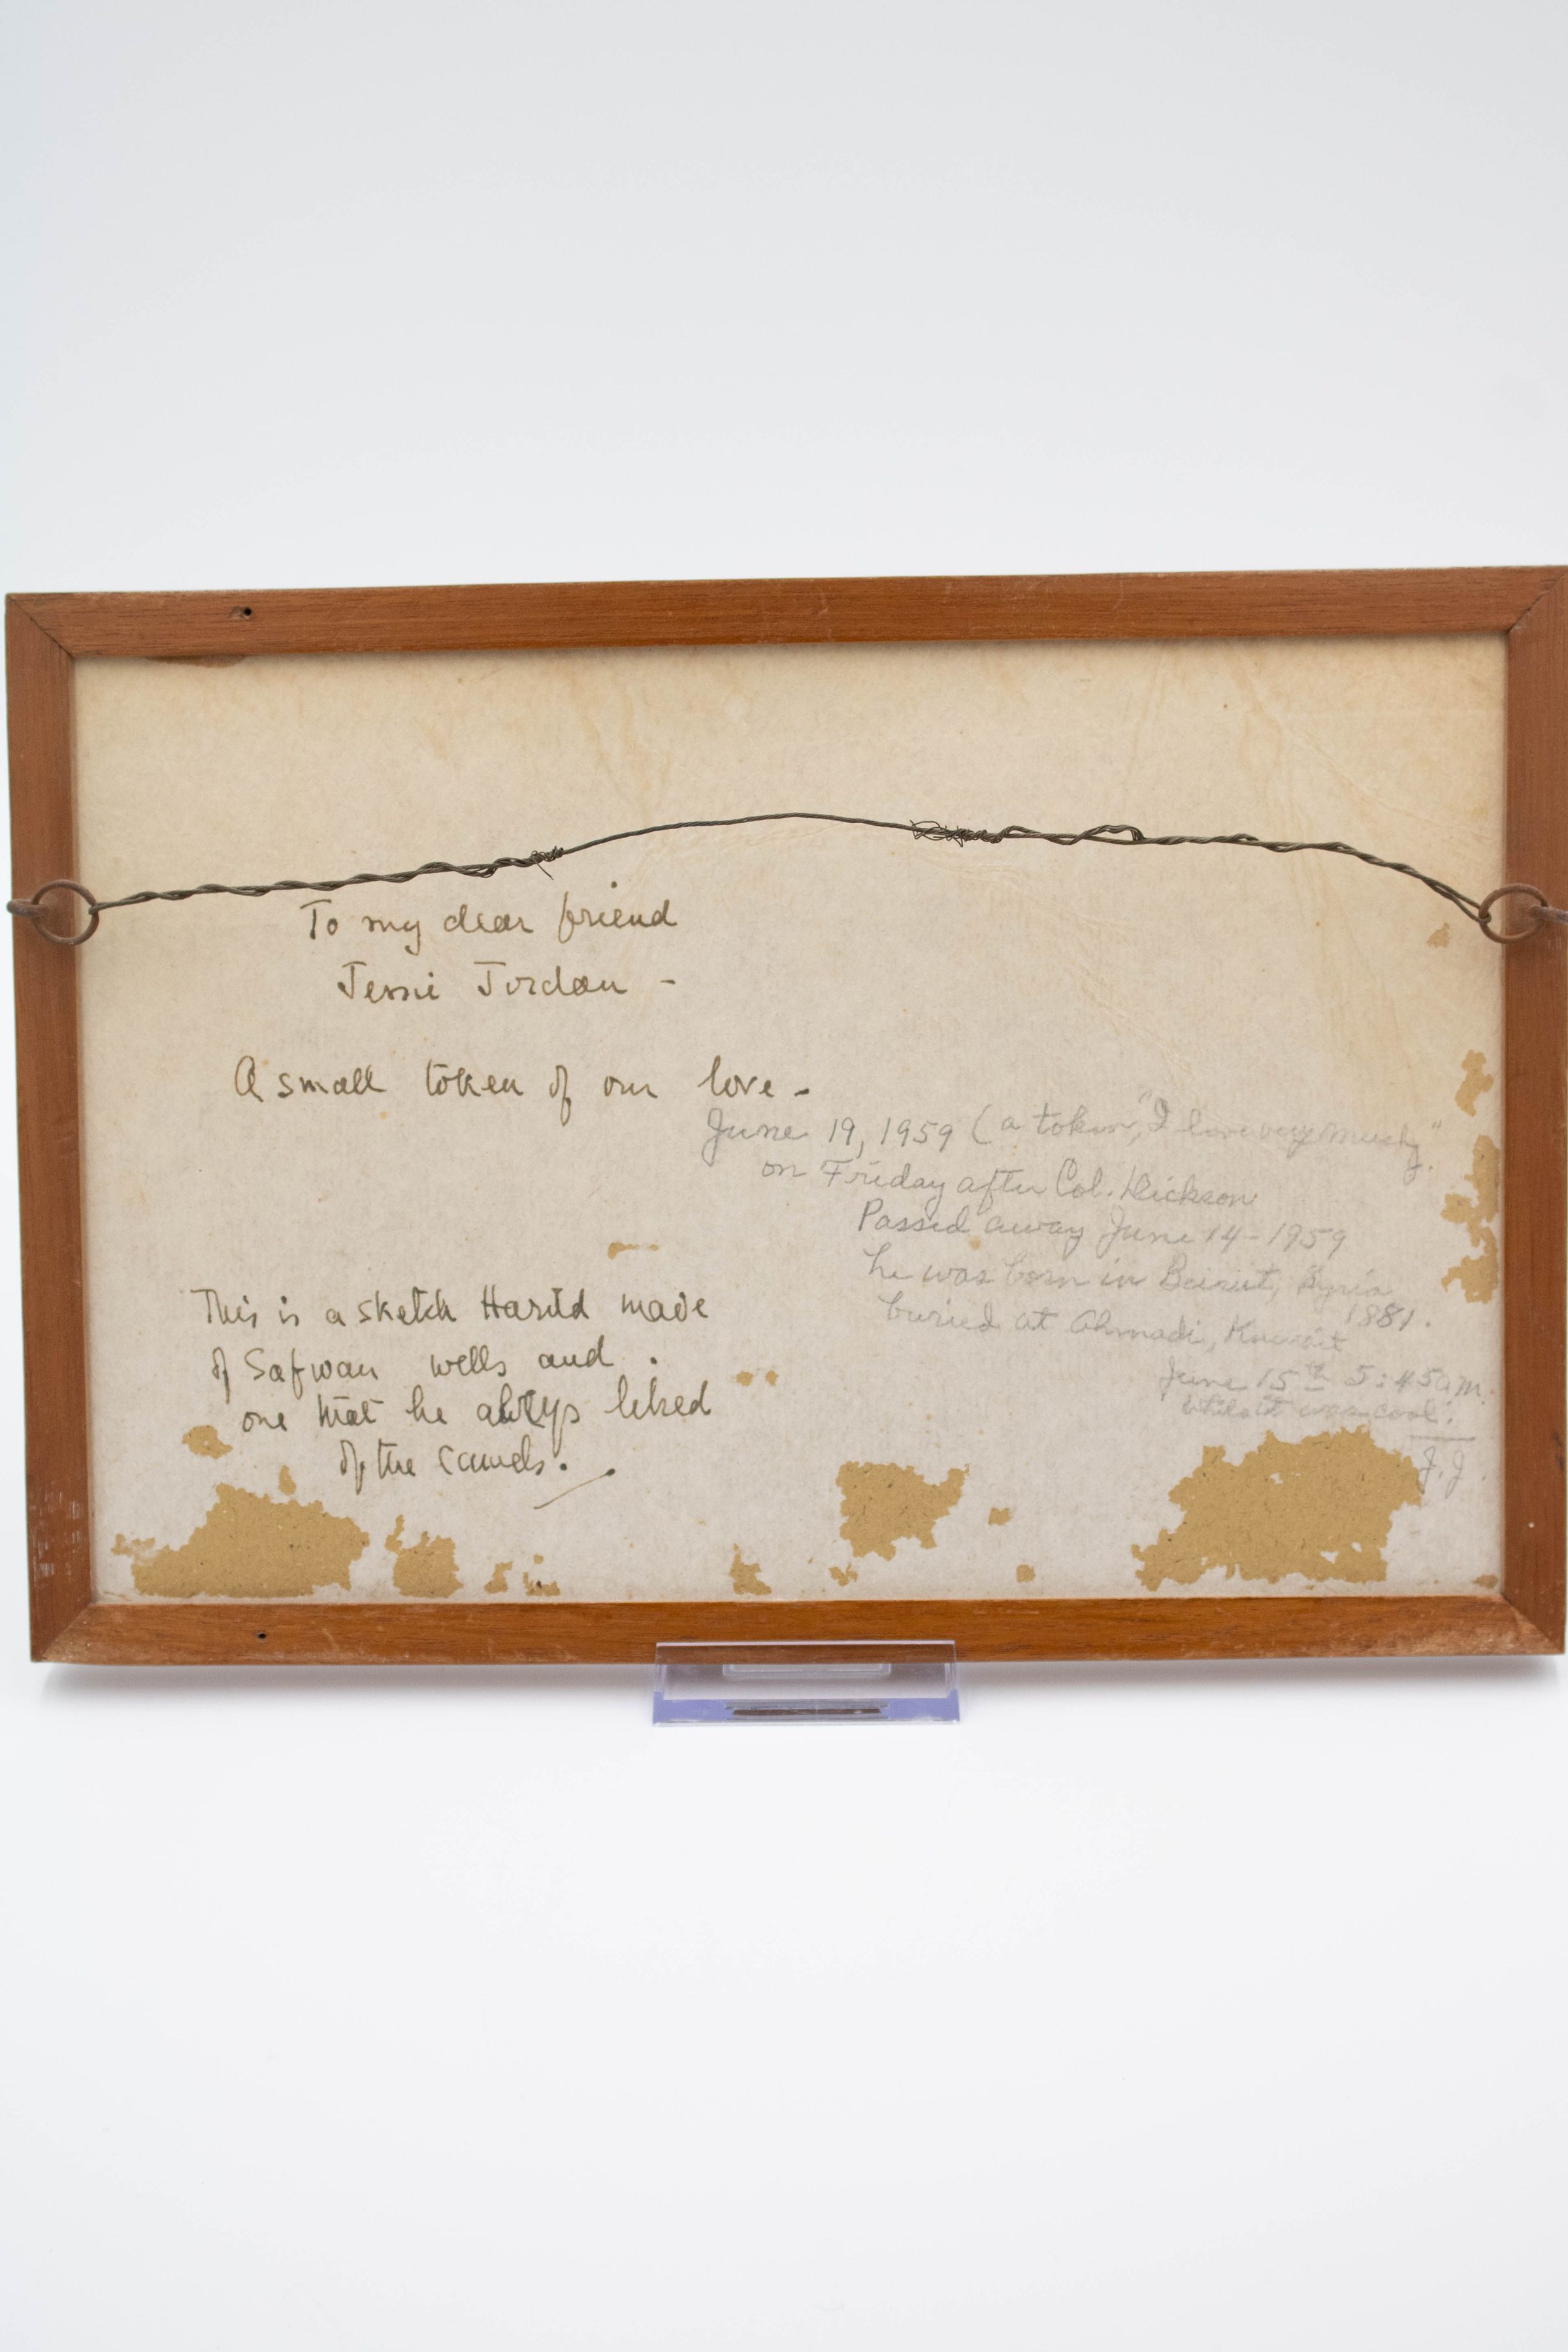 To my dear friend
Jessie Jordan -
A small token of our love -
June 19, 1959 (a token, "I love very much."
on Friday after Col. Dickson
Passed away June 14 - 1959
he was born in Beirut, Syria
1881.
buried at Ahmadi, Kuwait
June 15th 5:45 a.m.
whilst it was cool.
J.J.
This is a sketch Harold made
of Safwan wells and
one that he always liked
of the camels.